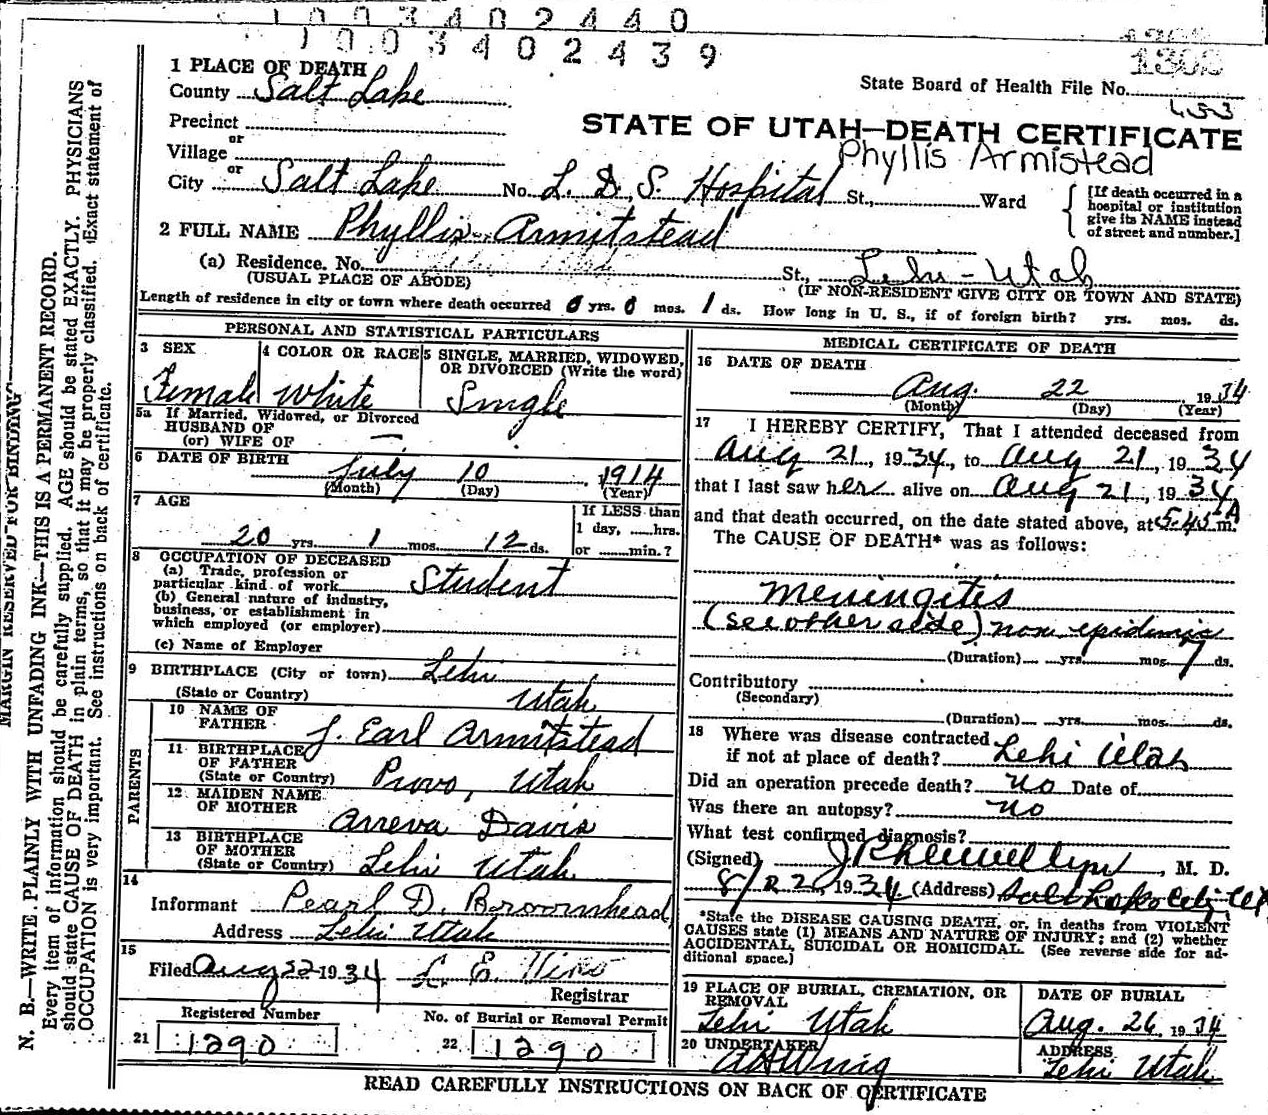 1003402440
1003402439
1308
1 PLACE OF DEATH
County Salt Lake
State Board of Health File No.
453
Precinct
or
Village
STATE OF UTAH—DEATH CERTIFICATE
Phyllis Armistead
or
City Salt Lake No. L. D. S. Hospital St., Ward
[If death occurred in a hospital or institution give its NAME instead of street and number.]
2 FULL NAME Phyllis Armitstead
(a) Residence. No. St., Lehi - Utah
(USUAL PLACE OF ABODE) (IF NON-RESIDENT GIVE CITY OR TOWN AND STATE)
Length of residence in city or town where death occurred 0 yrs. 0 mos. 1 ds. How long in U. S., if of foreign birth? yrs. mos. ds.
PERSONAL AND STATISTICAL PARTICULARS
3 SEX 4 COLOR OR RACE 5 SINGLE, MARRIED, WIDOWED, OR DIVORCED (Write the word)
Female White Single
5a If Married, Widowed, or Divorced
HUSBAND OF
(or) WIFE OF —
6 DATE OF BIRTH July 10 1914
(Month) (Day) (Year)
7 AGE
20 yrs. 1 mos. 12 ds.
If LESS than
1 day, hrs.
or min.?
8 OCCUPATION OF DECEASED
(a) Trade, profession or
particular kind of work Student
(b) General nature of industry,
business, or establishment in
which employed (or employer)
(c) Name of Employer
9 BIRTHPLACE (City or town) Lehi
(State or Country) Utah
PARENTS
10 NAME OF
FATHER J. Earl Armitstead
11 BIRTHPLACE
OF FATHER
(State or Country) Provo, Utah
12 MAIDEN NAME
OF MOTHER Arreva Davis
13 BIRTHPLACE
OF MOTHER
(State or Country) Lehi Utah
14
Informant Pearl D. Broomhead
Address Lehi Utah
15
Filed Aug 22 1934 L. E.
Registrar
Registered Number No. of Burial or Removal Permit
21 1290 22 1290
MEDICAL CERTIFICATE OF DEATH
16 DATE OF DEATH
Aug. 22 1934
(Month) (Day) (Year)
17 I HEREBY CERTIFY, That I attended deceased from
Aug 21, 1934, to Aug 21, 1934
that I last saw her alive on Aug 21, 1934
and that death occurred, on the date stated above, at 5:45 A m.
The CAUSE OF DEATH* was as follows:
Meningitis
(see other side) non epidemic
(Duration) yrs. mos. 7 ds.
Contributory
(Secondary)
(Duration) yrs. mos. ds.
18 Where was disease contracted
if not at place of death? Lehi Utah
Did an operation precede death? no Date of
Was there an autopsy? no
What test confirmed diagnosis?
(Signed) J R Llewellyn, M. D.
8/22, 1934 (Address) Salt Lake City Ut
*State the DISEASE CAUSING DEATH, or, in deaths from VIOLENT
CAUSES state (1) MEANS AND NATURE OF INJURY; and (2) whether
ACCIDENTAL, SUICIDAL OR HOMICIDAL. (See reverse side for ad-
ditional space.)
19 PLACE OF BURIAL, CREMATION, OR REMOVAL DATE OF BURIAL
Lehi Utah Aug. 26 1934
20 UNDERTAKER ADDRESS
Lehi Utah
READ CAREFULLY INSTRUCTIONS ON BACK OF CERTIFICATE
MARGIN RESERVED FOR BINDING
N. B.—WRITE PLAINLY WITH UNFADING INK—THIS IS A PERMANENT RECORD.
Every item of information should be carefully supplied. AGE should be stated EXACTLY. PHYSICIANS
should state CAUSE OF DEATH in plain terms, so that it may be properly classified. Exact statement of
OCCUPATION is very important. See instructions on back of certificate.